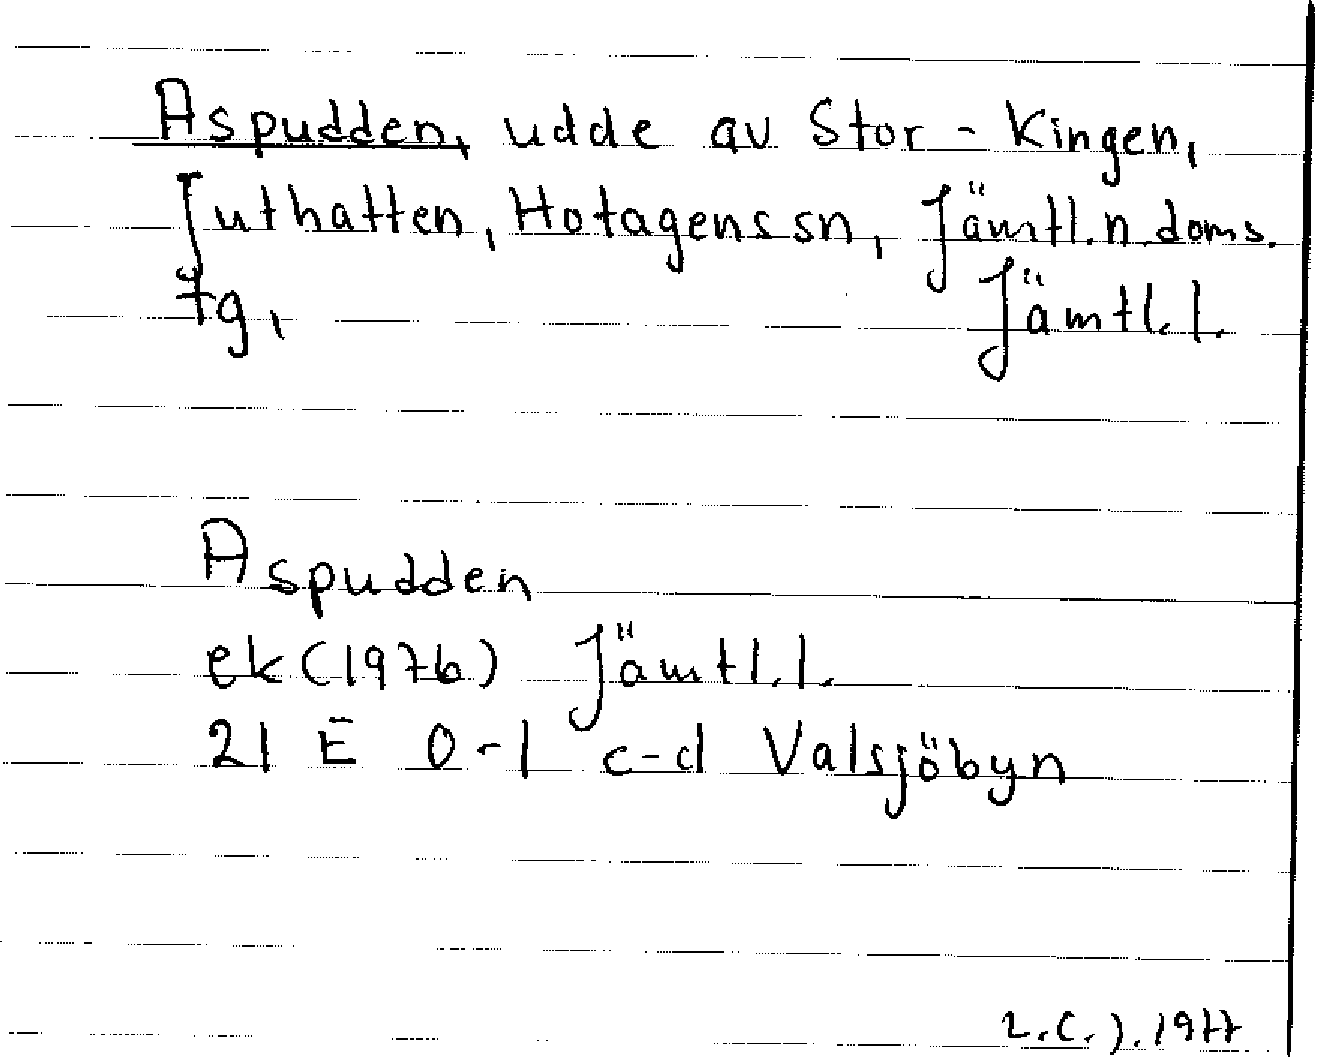 Aspudden, udde av Stor-Kingen,
Juthatten, Hotagens sn, Jämtl. n. doms.
tg, Jämtl. l.
Aspudden
ek (1976) Jämtl. l.
21 E 0-1 c-d Valsjöbyn
1977